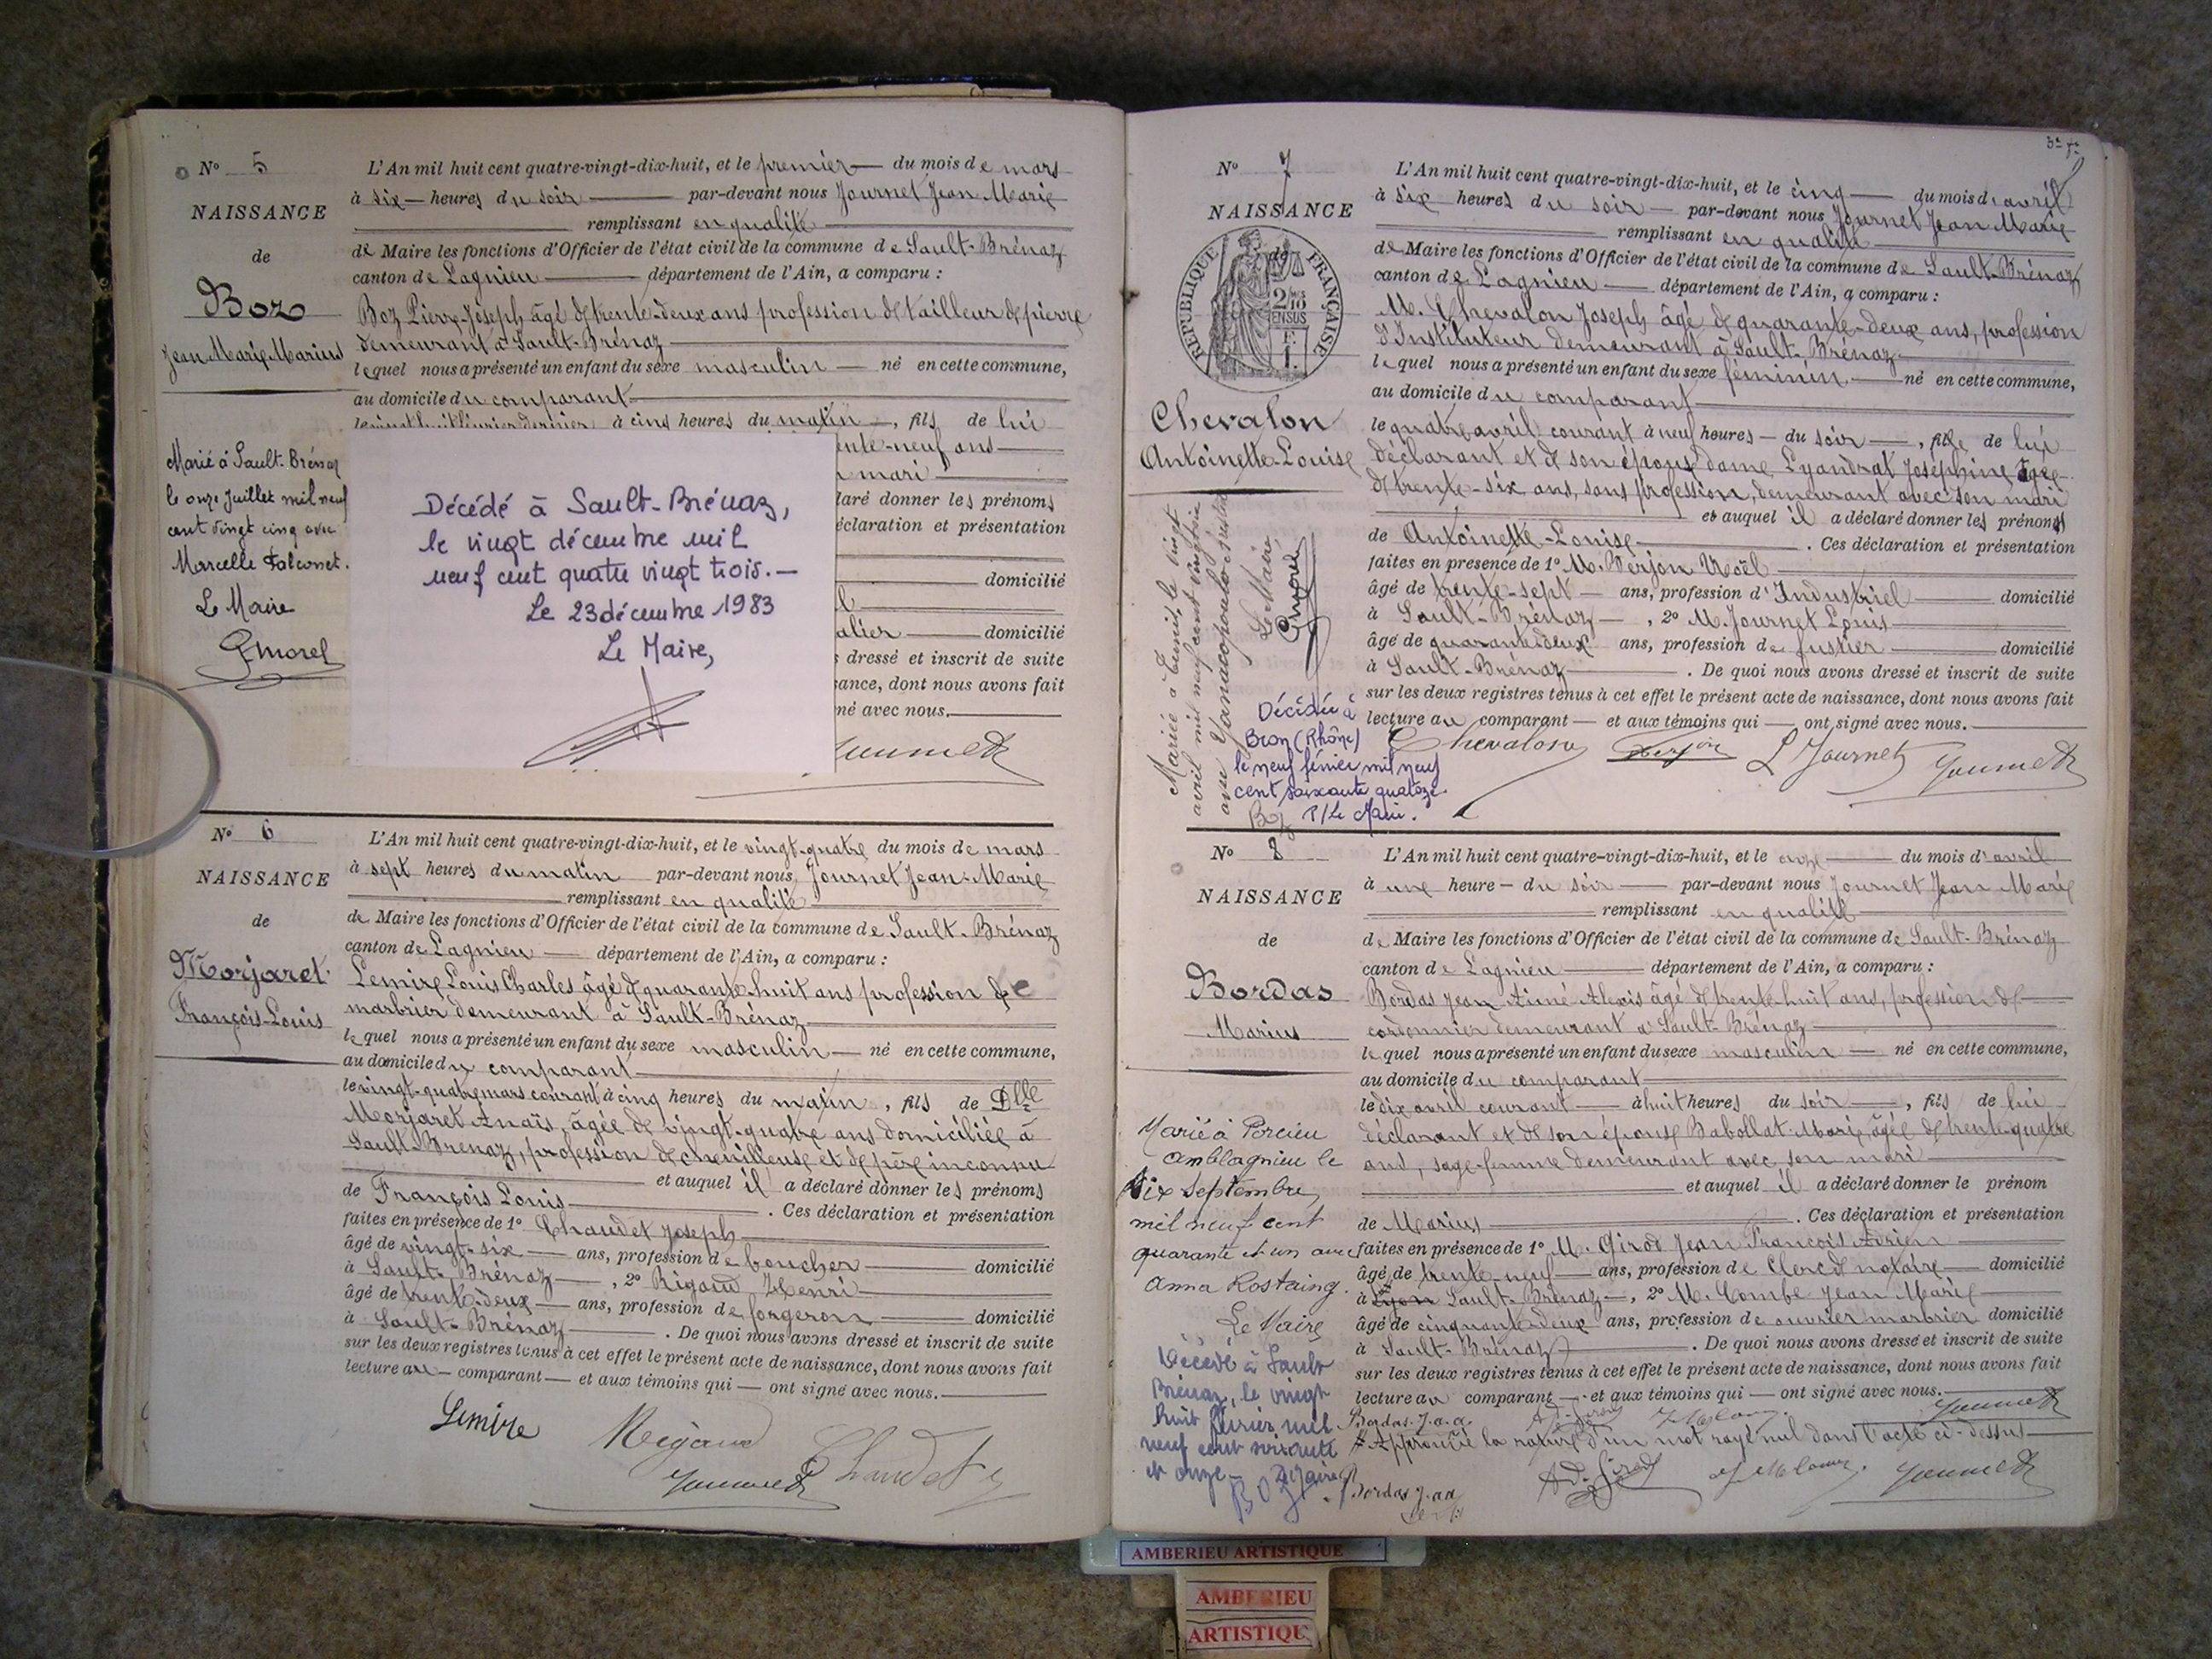 N° 5
NAISSANCE
de
Boz
Jean Marie Marius
L'An mil huit cent quatre-vingt-dix-huit, et le premier du mois de mars
à six heures du soir par-devant nous Journet Jean Marie
remplissant en qualité
de Maire les fonctions d'Officier de l'état civil de la commune de Sault-Brénaz
canton de Lagnieu département de l'Ain, a comparu :
Boz Pierre-Joseph âgé de trente-deux ans profession de tailleur de pierre
demeurant à Sault-Brénaz
lequel nous a présenté un enfant du sexe masculin né en cette commune,
au domicile du comparant
le vingt huit février dernier à cinq heures du matin, fils de lui
ente-neuf ans
mari
laré donner les prénoms
éclaration et présentation
domicilié
alier domicilié
s dressé et inscrit de suite
sance, dont nous avons fait
né avec nous.
Journet
Marié à Sault-Brénaz
le onze Juillet mil neuf
cent vingt cinq avec
Marcelle Falconet.
Le Maire
Décédé à Sault-Brénaz,
le vingt décembre mil
neuf cent quatre vingt trois.—
Le 23 décembre 1983
Le Maire,
N° 6
NAISSANCE
de
Morjaret
François-Louis
L'An mil huit cent quatre-vingt-dix-huit, et le vingt-quatre du mois de mars
à sept heures du matin par-devant nous Journet Jean-Marie
remplissant en qualité
de Maire les fonctions d'Officier de l'état civil de la commune de Sault-Brénaz
canton de Lagnieu département de l'Ain, a comparu :
Lemire Louis Charles âgé de quarante-huit ans profession de
marbrier demeurant à Sault-Brénaz
lequel nous a présenté un enfant du sexe masculin né en cette commune,
au domicile du comparant
le vingt-quatre mars courant à cinq heures du matin, fils de Dlle
Morjaret Anaïs, âgée de vingt-quatre ans domiciliée à
Sault-Brenaz, profession de chenilleuse et de père inconnu
et auquel il a déclaré donner les prénoms
de François Louis . Ces déclaration et présentation
faites en présence de 1° Chaudet Joseph
âgé de vingt-six ans, profession de boucher domicilié
à Sault-Brénaz, 2° Rigaud Henri
âgé de trente-deux ans, profession de forgeron domicilié
à Sault-Brénaz . De quoi nous avons dressé et inscrit de suite
sur les deux registres tenus à cet effet le présent acte de naissance, dont nous avons fait
lecture au comparant et aux témoins qui ont signé avec nous.
Lemire Rigaud Chaudet
Journet
N° 7
NAISSANCE
de
RÉPUBLIQUE FRANÇAISE
2/10
EN SUS
1 F.
Chevalon
Antoinette-Louise
L'An mil huit cent quatre-vingt-dix-huit, et le cinq du mois d'avril
à six heures du soir par-devant nous Journet Jean Marie
remplissant en qualité
de Maire les fonctions d'Officier de l'état civil de la commune de Sault-Brénaz
canton de Lagnieu département de l'Ain, a comparu :
M. Chevalon Joseph âgé de quarante-deux ans, profession
d'Instituteur demeurant à Sault-Brénaz
lequel nous a présenté un enfant du sexe féminin né en cette commune,
au domicile du comparant
le quatre avril courant à neuf heures du soir, fille de lui
déclarant et de son épouse dame Lyandrat Joséphine âgée
de trente-six ans, sans profession, demeurant avec son mari
et auquel il a déclaré donner les prénoms
de Antoinette-Louise . Ces déclaration et présentation
faites en présence de 1° M. Verjon Noël
âgé de trente-sept ans, profession d'Industriel domicilié
à Sault-Brénaz, 2° M. Journet Louis
âgé de quarante-deux ans, profession de fustier domicilié
à Sault-Brénaz . De quoi nous avons dressé et inscrit de suite
sur les deux registres tenus à cet effet le présent acte de naissance, dont nous avons fait
lecture au comparant et aux témoins qui ont signé avec nous.
Chevalon Verjon L Journet Journet
Mariée à Tunis, le vingt
avril mil neuf cent vingt
avec
Le Maire,
Décédée à
Bron (Rhône)
le neuf février mil neuf
cent soixante quatorze.
P/Le Maire.
N° 8
NAISSANCE
de
Bordas
Marius
L'An mil huit cent quatre-vingt-dix-huit, et le onze du mois d'avril
à une heure du soir par-devant nous Journet Jean Marie
remplissant en qualité
de Maire les fonctions d'Officier de l'état civil de la commune de Sault-Brénaz
canton de Lagnieu département de l'Ain, a comparu :
Bordas Jean Aimé Alexis âgé de trente huit ans, profession de
cordonnier demeurant à Sault-Brénaz
lequel nous a présenté un enfant du sexe masculin né en cette commune,
au domicile du comparant
le dix avril courant à huit heures du soir, fils de lui
déclarant et de son épouse Babollat Marie, âgée de trente-quatre
ans, sage-femme demeurant avec son mari
et auquel il a déclaré donner le prénom
de Marius . Ces déclaration et présentation
faites en présence de 1° M. Girod Jean François Adrien
âgé de trente-neuf ans, profession de Clerc de notaire domicilié
à Lyon Sault-Brénaz, 2° M. Combe Jean Marie
âgé de cinquante-deux ans, profession de ouvrier marbrier domicilié
à Sault-Brénaz . De quoi nous avons dressé et inscrit de suite
sur les deux registres tenus à cet effet le présent acte de naissance, dont nous avons fait
lecture au comparant et aux témoins qui ont signé avec nous.
Bordas J.a.a. Journet
Approuvé la rature d'un mot rayé nul dans l'acte ci-dessus
Bordas J.a.a. A.D. Girod Journet
Marié à Porcieu
Amblagnieu le
six Septembre
mil neuf cent
quarante et un avec
Anna Rostaing.
Le Maire
Décédé à Sault
Brénaz, le vingt
huit février mil
neuf cent soixante
et onze.
AMBERIEU ARTISTIQUE
AMBERIEU
ARTISTIQU